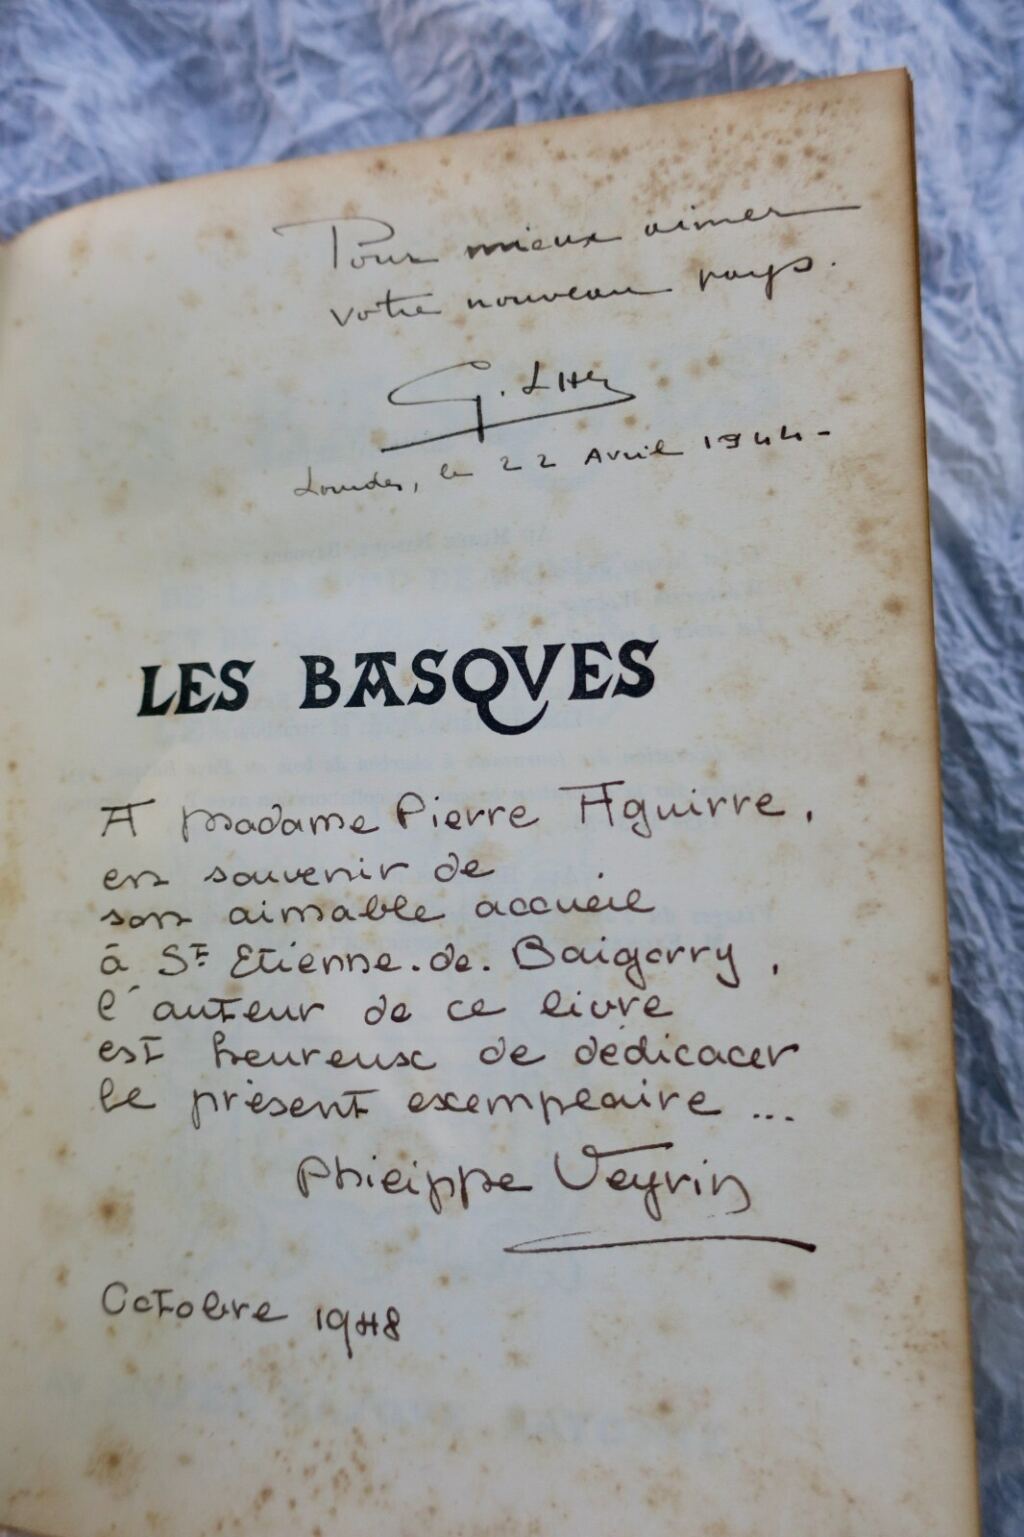 Pour mieux aimer
votre nouveau pays.
Lourdes, le 22 Avril 1944 -
LES BASQVES
A Madame Pierre Aguirre,
en souvenir de
son aimable accueil
à St Etienne.de.Baigorry,
l'auteur de ce livre
est heureux de dédicacer
le présent exemplaire ...
Philippe Veyrin
Octobre 1948